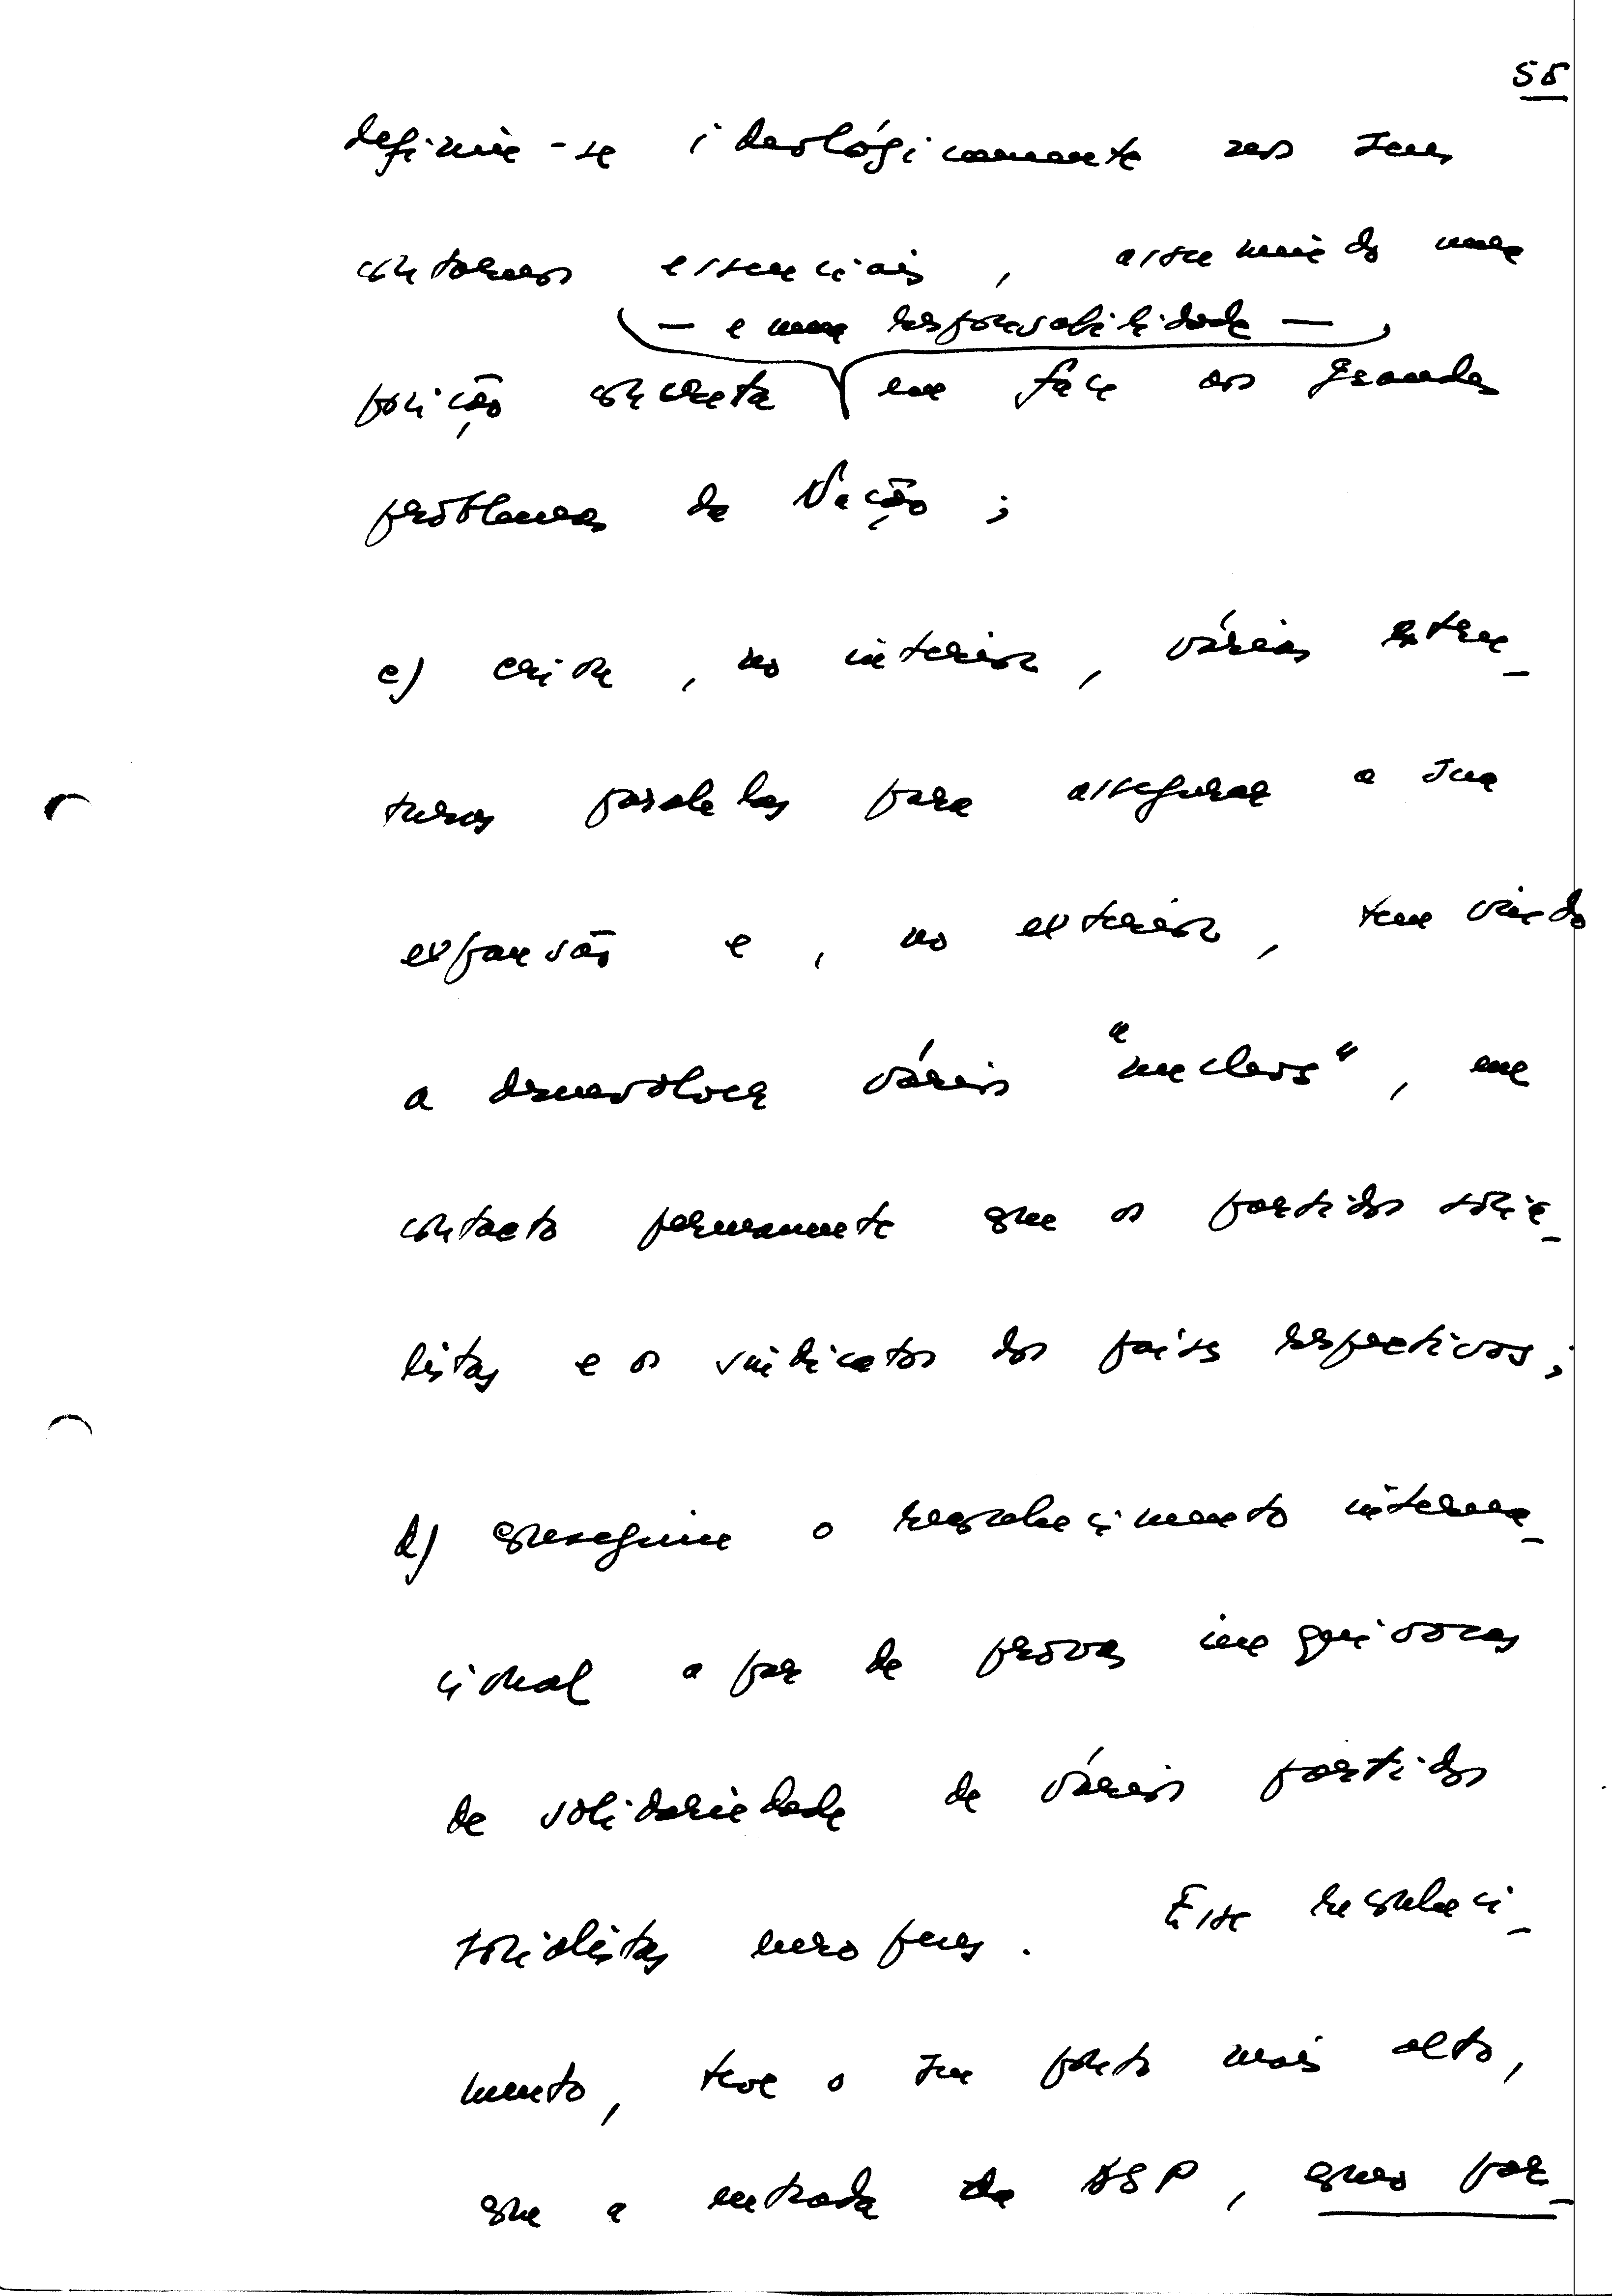 58
definir-se ideológicamente nos seus
contornos essenciais, assumindo uma
— e uma responsabilidade —
posição concreta em face aos grandes
problemas da Nação;
c) criou, no interior, várias estru-
turas paralelas para assegurar a sua
expansão e, no exterior, tem vindo
a desenvolver vários "nucleos", em
contacto permanente com os partidos socia-
listas e os sindicatos dos países respectivos;
d) conseguiu o reconhecimento interna-
cional a par de provas inequivocas
de solidariedade de vários partidos
socialistas europeus. Esse reconheci-
mento, teve o seu ponto mais alto,
com a entrada da ASP, como par-